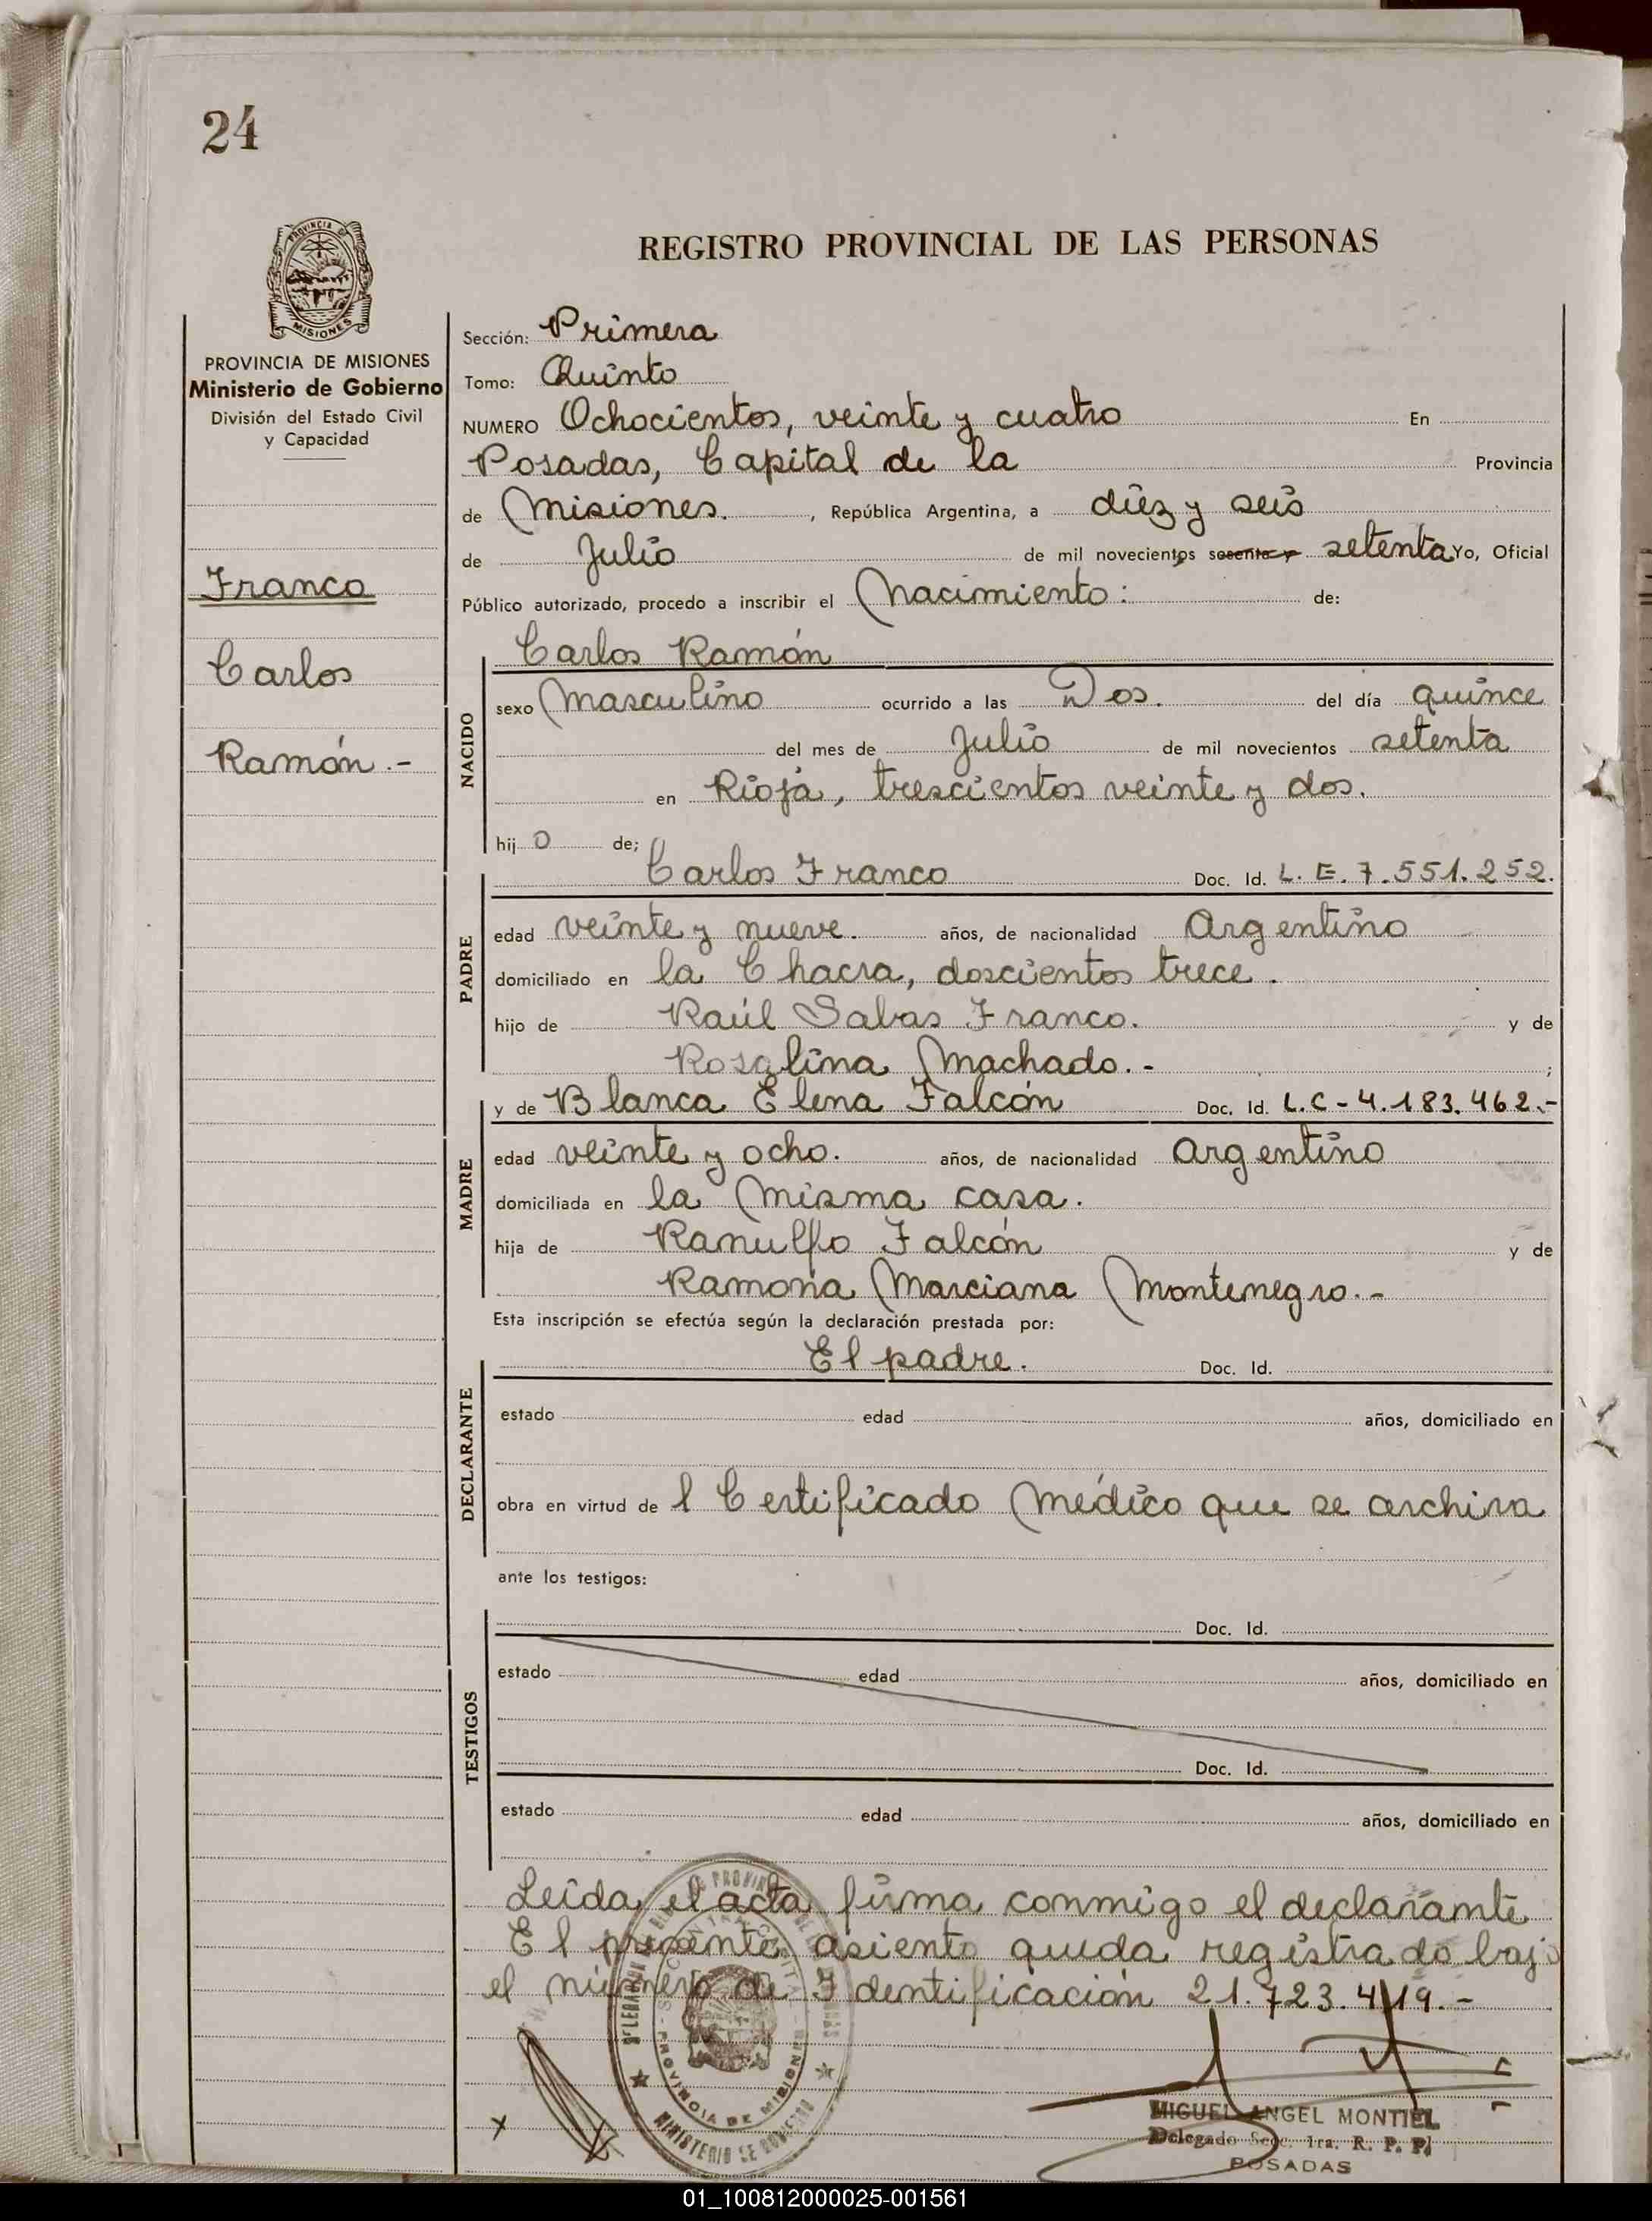 24
PROVINCIA DE
MISIONES
REGISTRO PROVINCIAL DE LAS PERSONAS
PROVINCIA DE MISIONES
Ministerio de Gobierno
División del Estado Civil
y Capacidad
Franco
Carlos
Ramón.-
Sección: Primera
Tomo: Quinto
NUMERO Ochocientos, veinte y cuatro En
Posadas, Capital de la Provincia
de Misiones. , República Argentina, a diez y seis
de Julio de mil novecientos sesenta y setenta Yo, Oficial
Público autorizado, procedo a inscribir el Nacimiento: de:
Carlos Ramón
NACIDO
sexo Masculino ocurrido a las Dos. del día quince
del mes de Julio de mil novecientos setenta
en Rioja, trescientos veinte y dos.
hij o de;
Carlos Franco Doc. Id. L.E.7.551.252.
PADRE
edad veinte y nueve. años, de nacionalidad Argentino
domiciliado en la Chacra, doscientos trece.
hijo de Raúl Sabas Franco. y de
Rosalina Machado.- ;
y de Blanca Elena Falcón Doc. Id. L.C-4.183.462.-
MADRE
edad veinte y ocho. años, de nacionalidad Argentino
domiciliada en la misma casa.
hija de Ranulfo Falcón y de
Ramona Marciana Montenegro.-
Esta inscripción se efectúa según la declaración prestada por:
El padre. Doc. Id.
DECLARANTE
estado edad años, domiciliado en
obra en virtud de l Certificado Médico que se archiva
ante los testigos:
TESTIGOS
Doc. Id.
estado edad años, domiciliado en
Doc. Id.
estado edad años, domiciliado en
Leída el acta firma conmigo el declarante
El presente asiento queda registrado bajo
el número de Identificación 21.723.419.-
PROVINCIA DE MISIONES
MINISTERIO DE GOBIERNO
x
MIGUEL ANGEL MONTIEL
Delegado Secc. 1ra. R. P. P.
POSADAS
01_100812000025-001561